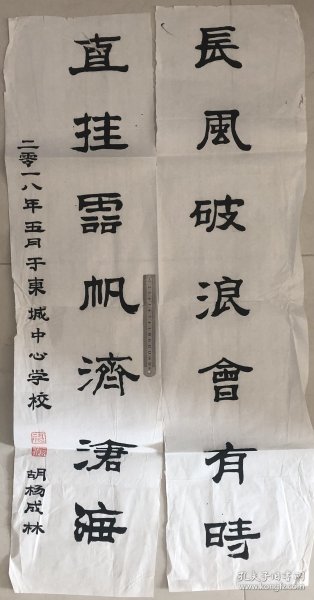 長風破浪會有時
直挂雲帆濟滄海
二零一八年五月于東城中心学校
胡杨成林
孔夫子旧书网